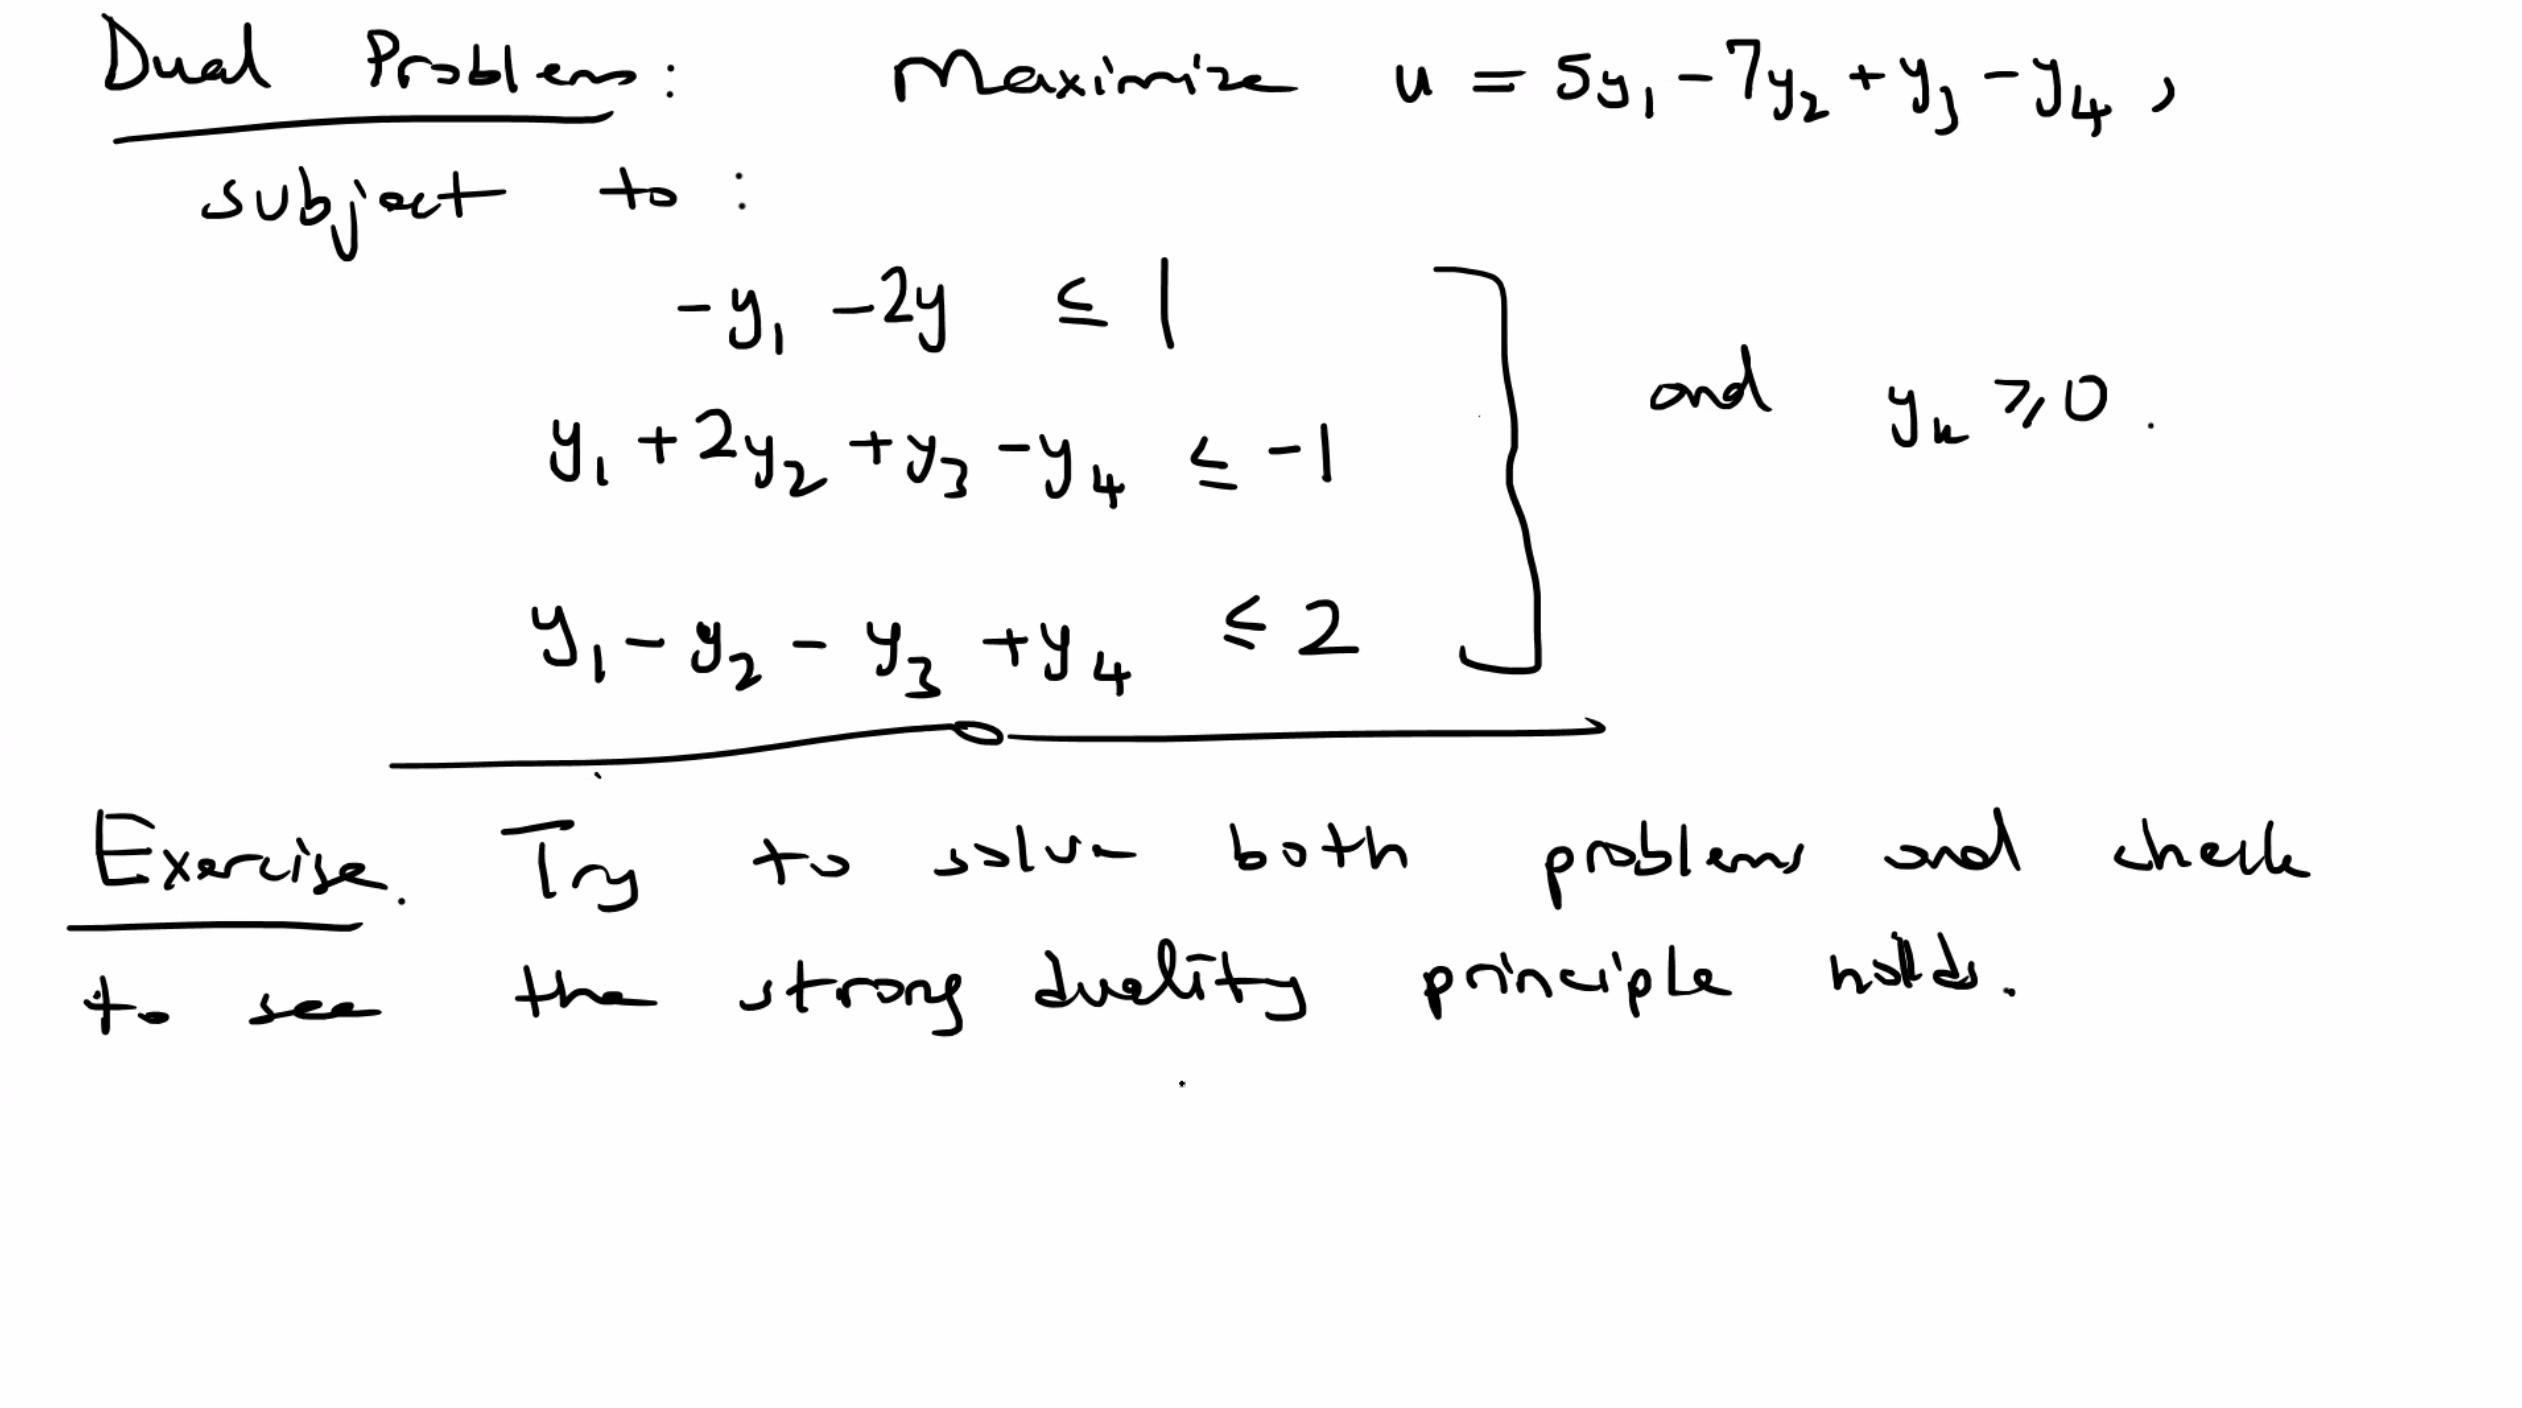 Dual Problem: Maximize u = 5y₁ - 7y₂ + y₃ - y₄ ,
subject to :
-y₁ - 2y ≤ 1
y₁ + 2y₂ + y₃ - y₄ ≤ -1
and yₖ ⩾ 0 .
y₁ - y₂ - y₃ + y₄ ≤ 2
Exercise. Try to solve both problems and check
to see the strong duality principle holds.